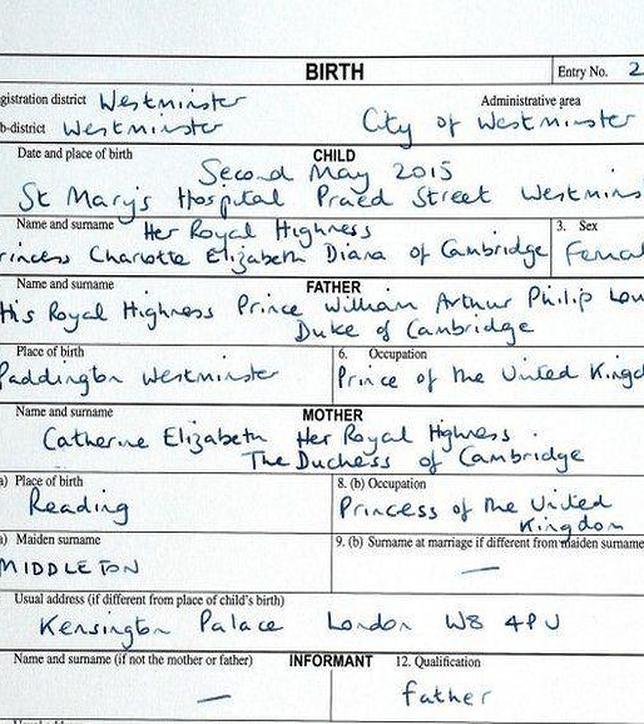 BIRTH Entry No. 2
gistration district Westminster Administrative area
b-district Westminster City of Westminster
Date and place of birth CHILD
Second May 2015
St Mary's Hospital Praed Street Westmins
Name and surname Her Royal Highness 3. Sex
rincess Charlotte Elizabeth Diana of Cambridge Femal
Name and surname FATHER
His Royal Highness Prince William Arthur Philip Lou
Duke of Cambridge
Place of birth 6. Occupation
Paddington Westminster Prince of the United Kingd
Name and surname MOTHER
Catherine Elizabeth Her Royal Highness
The Duchess of Cambridge
a) Place of birth 8. (b) Occupation
Reading Princess of the United
Kingdom
a) Maiden surname 9. (b) Surname at marriage if different from maiden surname
MIDDLETON —
Usual address (if different from place of child's birth)
Kensington Palace London W8 4PU
Name and surname (if not the mother or father) INFORMANT 12. Qualification
— father